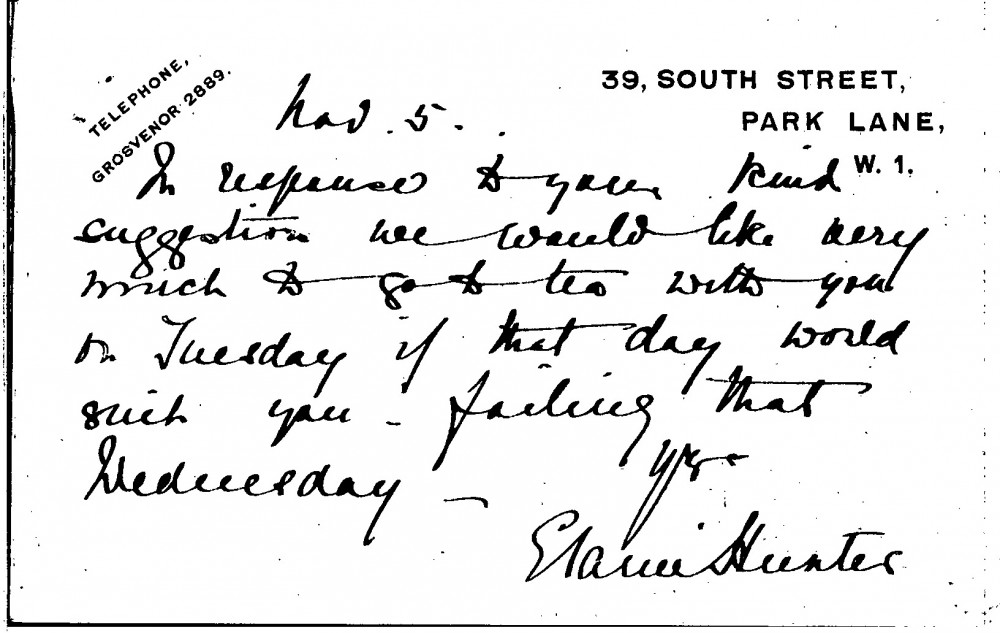 TELEPHONE,
GROSVENOR 2889.
39, SOUTH STREET,
PARK LANE,
W. 1.
Nov. 5.
In response to your kind
suggestion we would like very
much to go to tea with you
on Tuesday if that day would
suit you - failing that
Wednesday -
Yrs
Elaine Hunter